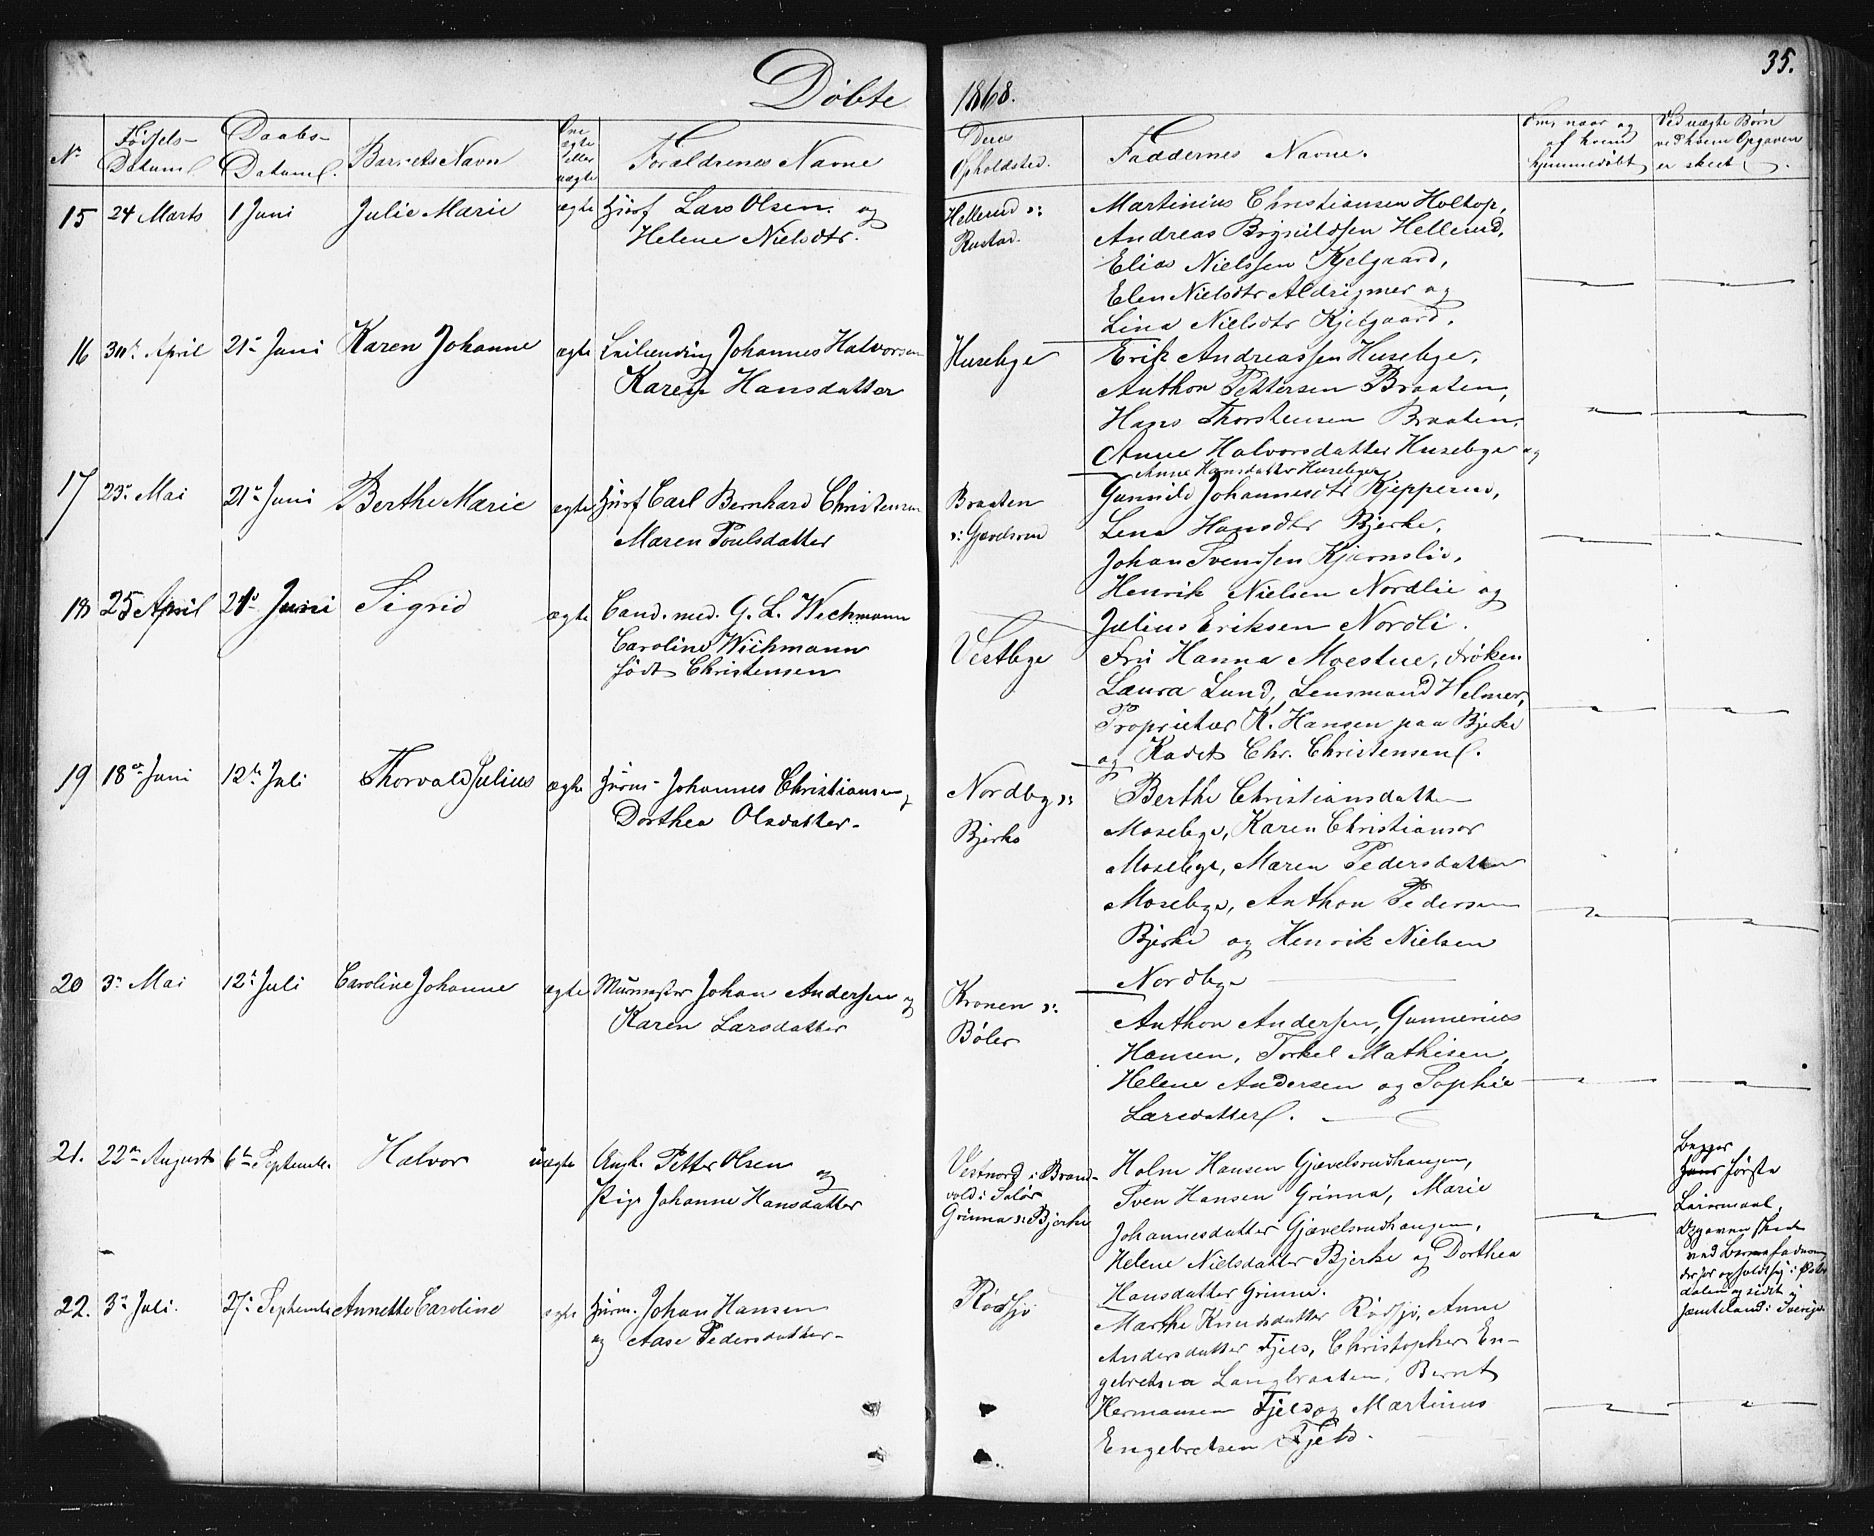 Døbte 1868. 35.
Nr Fødsels-Datum Daabs-Datum Barnets Navn Om ægte eller uægte Forældrenes Navne Deres Opholdsted. Faddernes Navne. Om, naar og af hvem hjemmedøbt Ved uægte Børn ved hvem Opgaven er skeet.
15 24 Marts 1 Juni Julie Marie ægte Lars Olsen. og
Helene Nielsdtr.
Hellerud
Rustad.
Martinius Christiansen Holtop,
Andreas Hellerud,
Elias Nielssen Kjelgaard,
Elen Nielsdtr Aldrigmer og
Lina Nielsdtr Kjelgaard.
16 April 21de Juni Karen Johanne ægte Johannes Halvorsen
Karen Hansdatter
Husebye
Erik Andreassen Husebye,
Anthon Pettersen Braaten,
Hans Thorstensen Braaten,
Anne Halvorsdatter Husebye og
Anne Hansdatter Husebye
17 23de Mai 21de Juni Berthe Marie ægte Carl Bernhard Christensen
Maren Poulsdatter
Braaten
Gunnild Johannesdtr Kjepperud,
Lena Hansdtr Bjerke,
Johan Svendsen Kjernslie,
Henrik Nielsen Nordlie og
Julius Eriksen Nordli.
18 25 April 21de Juni Sigrid ægte Cand. med. G. L. Wichmann
Caroline Wichmann
født Christensen
Vestbye
Fru Hanna Moestue, Frøken
Laura Lund, Lensmand Helmer,
Proprietær K. Hansen paa Bjerke
og Kadet Chr. Christensen.
19 18de Juni 12te Juli Thorvald Julius ægte Johannes Christiansen og
Dorthea Olsdatter.
Nordby
Bjerke
Berthe Christiansdatter
Mosebye, Karen Christiansdr
Mosebye, Maren Pedersdatter
Mosebye, Anthon Pedersen
Bjerke og Henrik Nielsen
Nordbye
20 3de Mai 12te Juli Caroline Johanne ægte Johan Andersen og
Karen Larsdatter
Kronen
Bøler
Anthon Andersen, Gunnerius
Hansen, Torkel Mathisen,
Helene Andersen og Sophie
Larsdatter.
21. 22de August 6te Septembr. Halvor uægte Ungk. Petter Olsen og
Pige Johanne Hansdatter
Vestnord i Brand-
vold i Solør
Grinna Bjerke
Holm Hansen Gjævelsrudhaugen,
Sven Hansen Grinna, Marie
Johannesdatter Gjævelsrudhaugen,
Helene Nielsdatter Bjerke og Dorthea
Hansdatter Grinna.
Begges
første
Leiermaal,
Opgaven skeet
ved Barnefaderen
Jemteland i Sverige
22. 3de Juli. 27de Septembr Annette Caroline ægte Johan Hansen
og Aase Pedersdatter
Rødsjø
Marthe Knudsdatter Rødsjø, Anne
Andersdatter Fjeld, Christopher En-
gebretsen Langbraaten, Bernt
Hermansen Fjeld og Martinus
Engebretsen Fjeld.